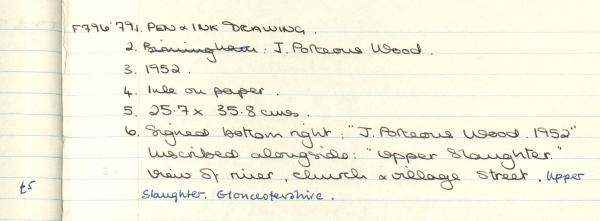 F796'79 1. PEN & INK DRAWING.
2. Birmingham: J. Porteous Wood.
3. 1952.
4. Ink on paper.
5. 25.7 x 35.8 cms.
6. Signed bottom right: "J. Porteous Wood. 1952"
Inscribed alongside: "Upper Slaughter."
View of river, church & village street. Upper
£5 Slaughter. Gloucestershire.